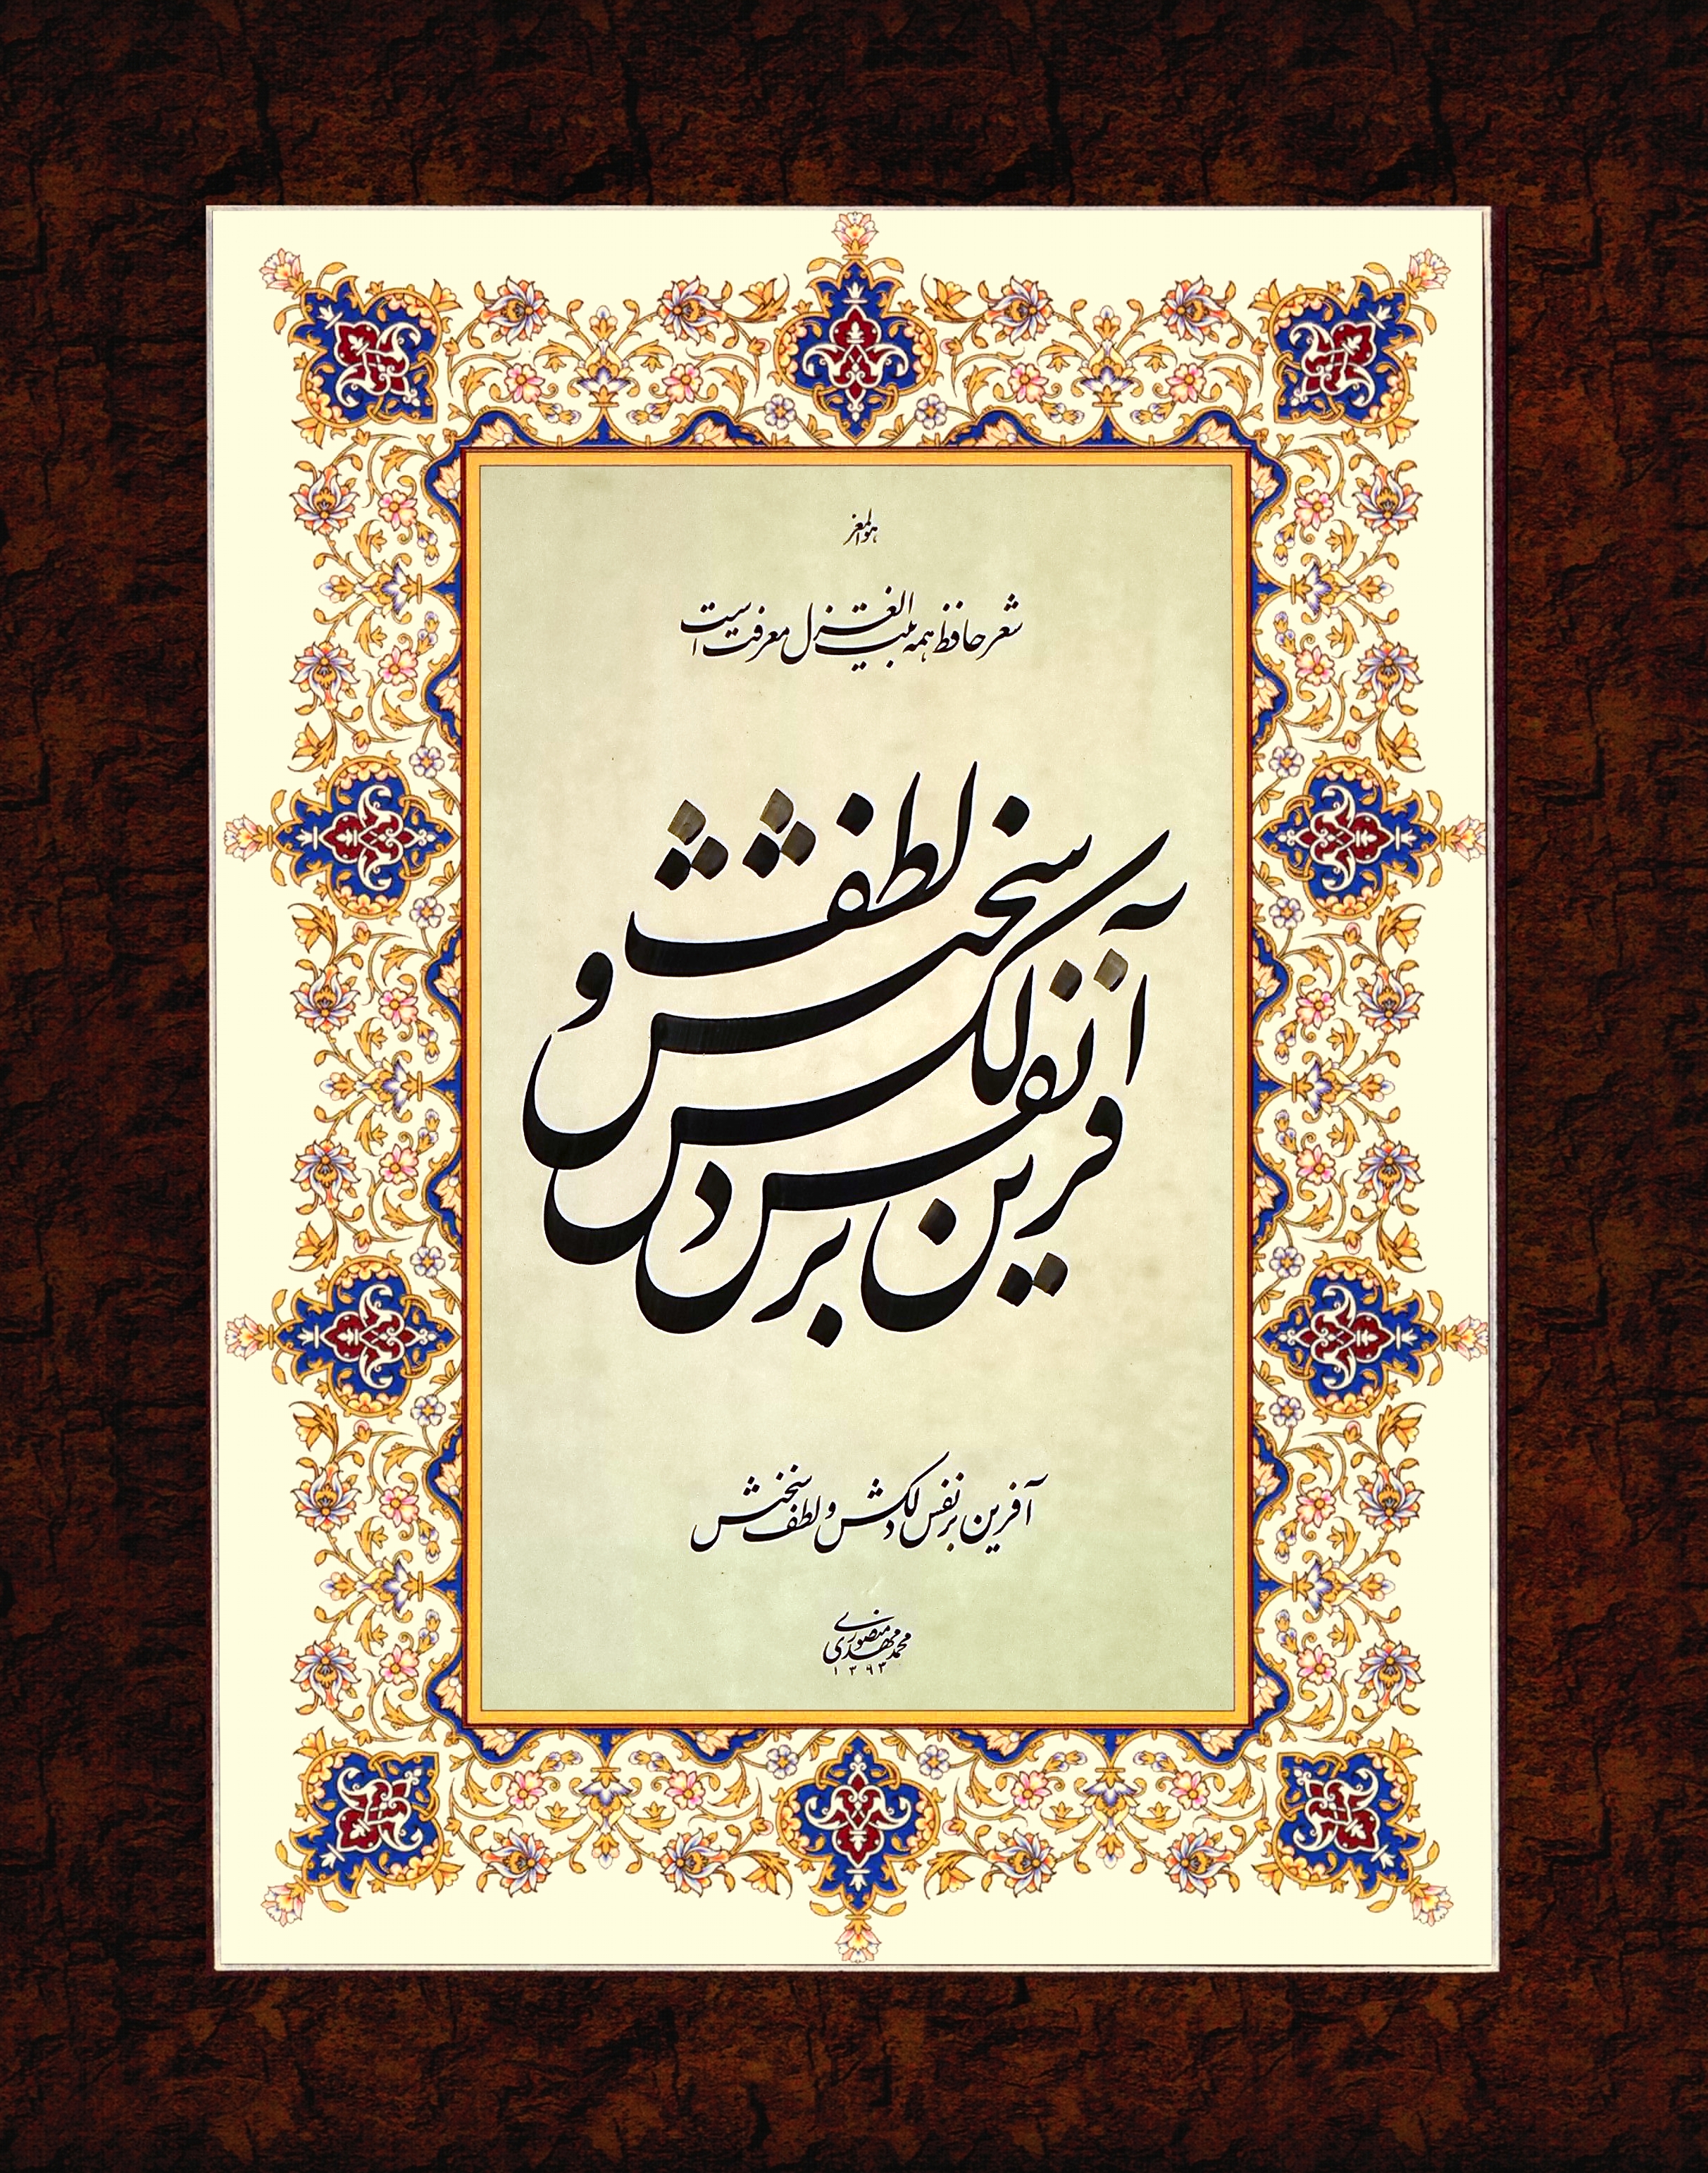 هوالمعز
شعر حافظ همه بیت الغزل معرفت است
آفرین بر نفس دلکش و لطف سخنش
آفرین بر نفس دلکش و لطف سخنش
محمد مهدی منصوری
۱۳۹۳